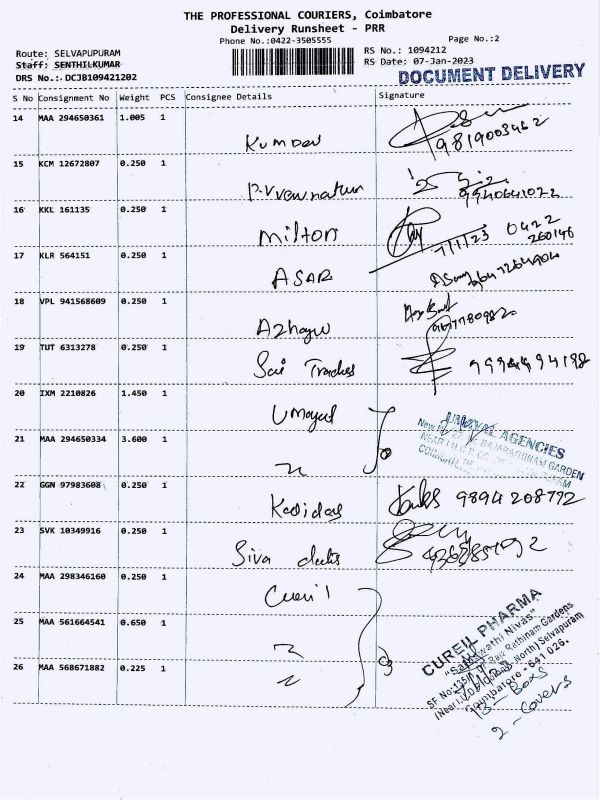 THE PROFESSIONAL COURIERS, Coimbatore
Delivery Runsheet - PRR
Phone No.:0422-3505555
Page No.:2
Route: SELVAPUPURAM
RS No.: 1094212
Staff: SENTHILKUMAR
RS Date: 07-Jan-2023
DRS No.: DCJB109421202
DOCUMENT DELIVERY
S No Consignment No Weight PCS Consignee Details Signature
14 MAA 294650361 1.005 1
9819003462
15 KCM 12672807 0.250 1
9940641022
16 KKL 161135 0.250 1
Milton 7/1/23 0422
260146
17 KLR 564151 0.250 1
ASAR
18 VPL 941568609 0.250 1
Azhagu
19 TUT 6313278 0.250 1
Sai Traders 9994494198
20 IXM 2210826 1.450 1
Umayal
UMAYAL AGENCIES
21 MAA 294650334 3.600 1
22 GGN 97983608 0.250 1
Kalidas 9894208772
23 SVK 10349916 0.250 1
Siva
24 MAA 298346160 0.250 1
Cureil
25 MAA 561664541 0.650 1
CUREIL PHARMA
"Saraswathi Nivas"
26 MAA 568671882 0.225 1
Coimbatore - 641 026.
13 - Boxs
2 - Covers